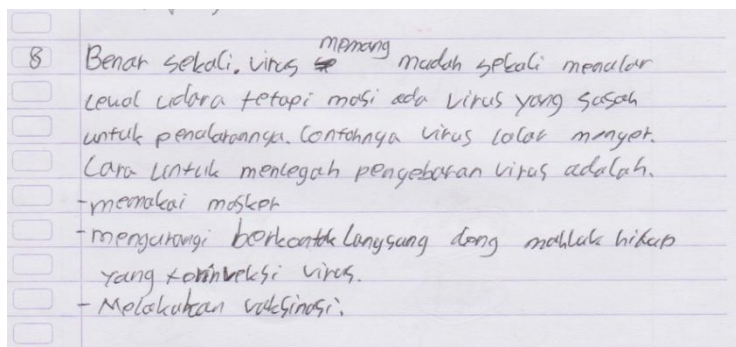 8 Benar sekali. virus memang mudah sekali menular
lewat udara tetapi masi ada virus yang susah
untuk penularannya. Contohnya virus cacar monyet.
Cara untuk mencegah pengebaran virus adalah.
- memakai masker
- mengurangi berkontak langsung deng mahluk hidup
yang terinveksi virus.
- Melakukan vaksinasi.